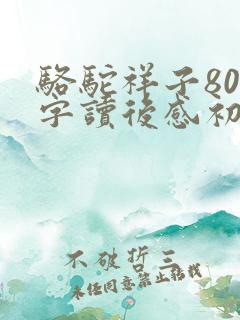 駱駝祥子80
字讀後感初
不破哲三
未任同意禁止轉載